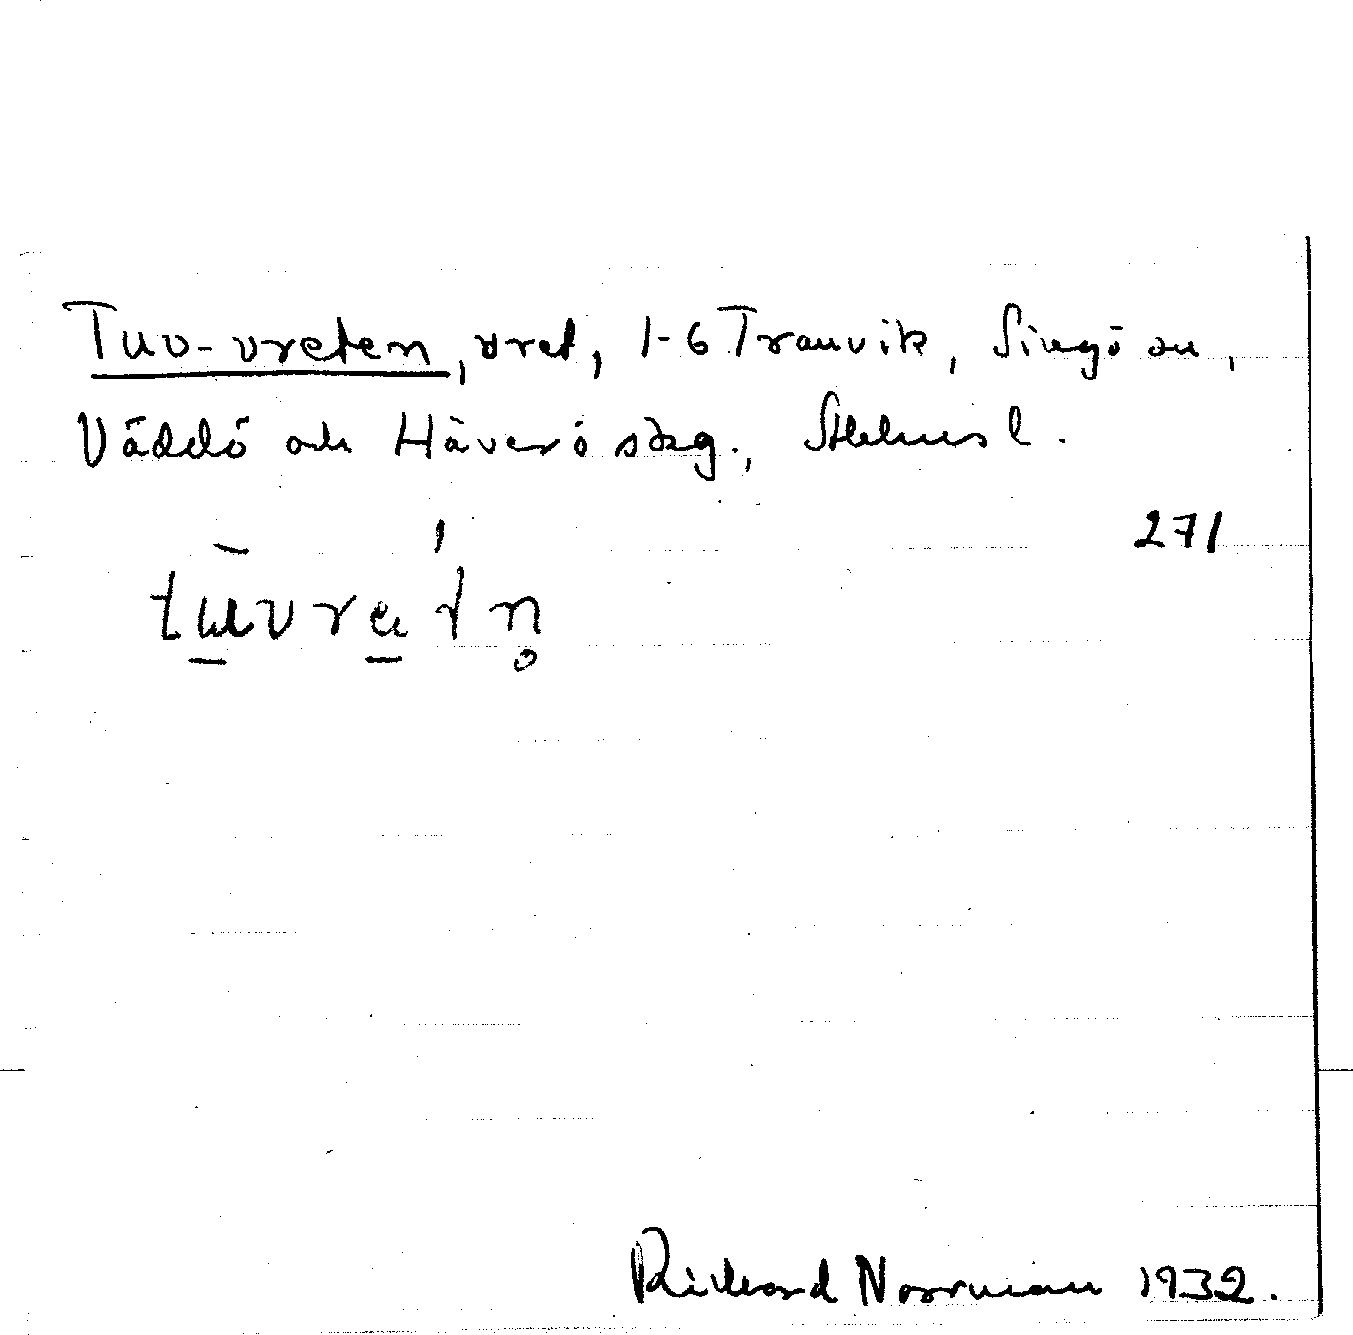 Tuv-vreten, vret, 1-6 Tranvik, Singö sn,
Väddö och Häverö skg., Sthlms l.
271
tuvretn̥
Rickard Norrman 1932.